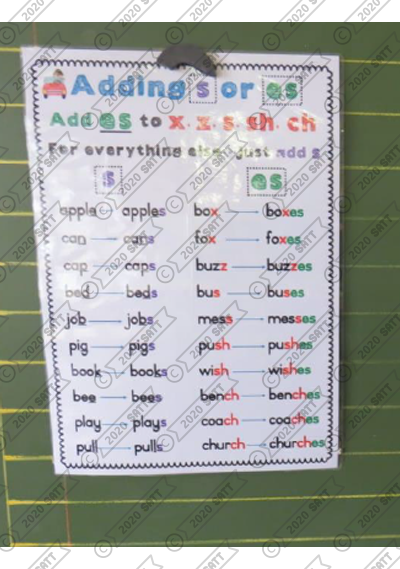 Adding s or es
Add es to x, z, s, sh, ch
For everything else, just add s
s es
apple apples box boxes
can cans fox foxes
cap caps buzz buzzes
bed beds bus buses
job jobs mess messes
pig pigs push pushes
book books wish wishes
bee bees bench benches
play plays coach coaches
pull pulls church churches